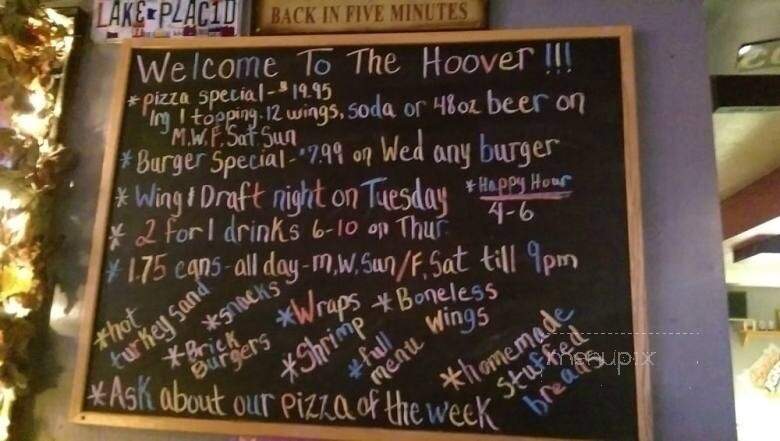 LAKE PLACID
BACK IN FIVE MINUTES
Welcome To The Hoover !!!
* pizza special - $19.95
lrg 1 topping. 12 wings, soda or 48oz beer on
M.W.F. Sat. Sun
* Burger Special - $7.99 on Wed any burger
* Wing & Draft night on Tuesday
* Happy Hour
4-6
* 2 for 1 drinks 6-10 on Thur.
* 1.75 cans - all day - m, W, Sun / F, Sat till 9pm
* hot
turkey sand
* snacks
* Brick
Burgers
* Wraps
* Shrimp
* Boneless
Wings
* full
menu
* homemade
stuffed
bread
* Ask about our pizza of the week
menupix